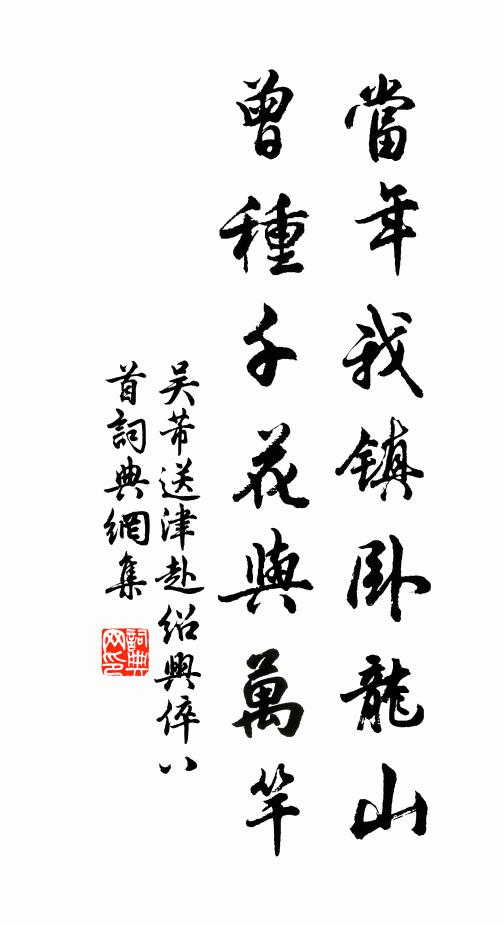 當年我鎮卧龍山
曾種千花與萬竿
吴芾送津赴紹興倅八
首詞典網集
詞典
网印